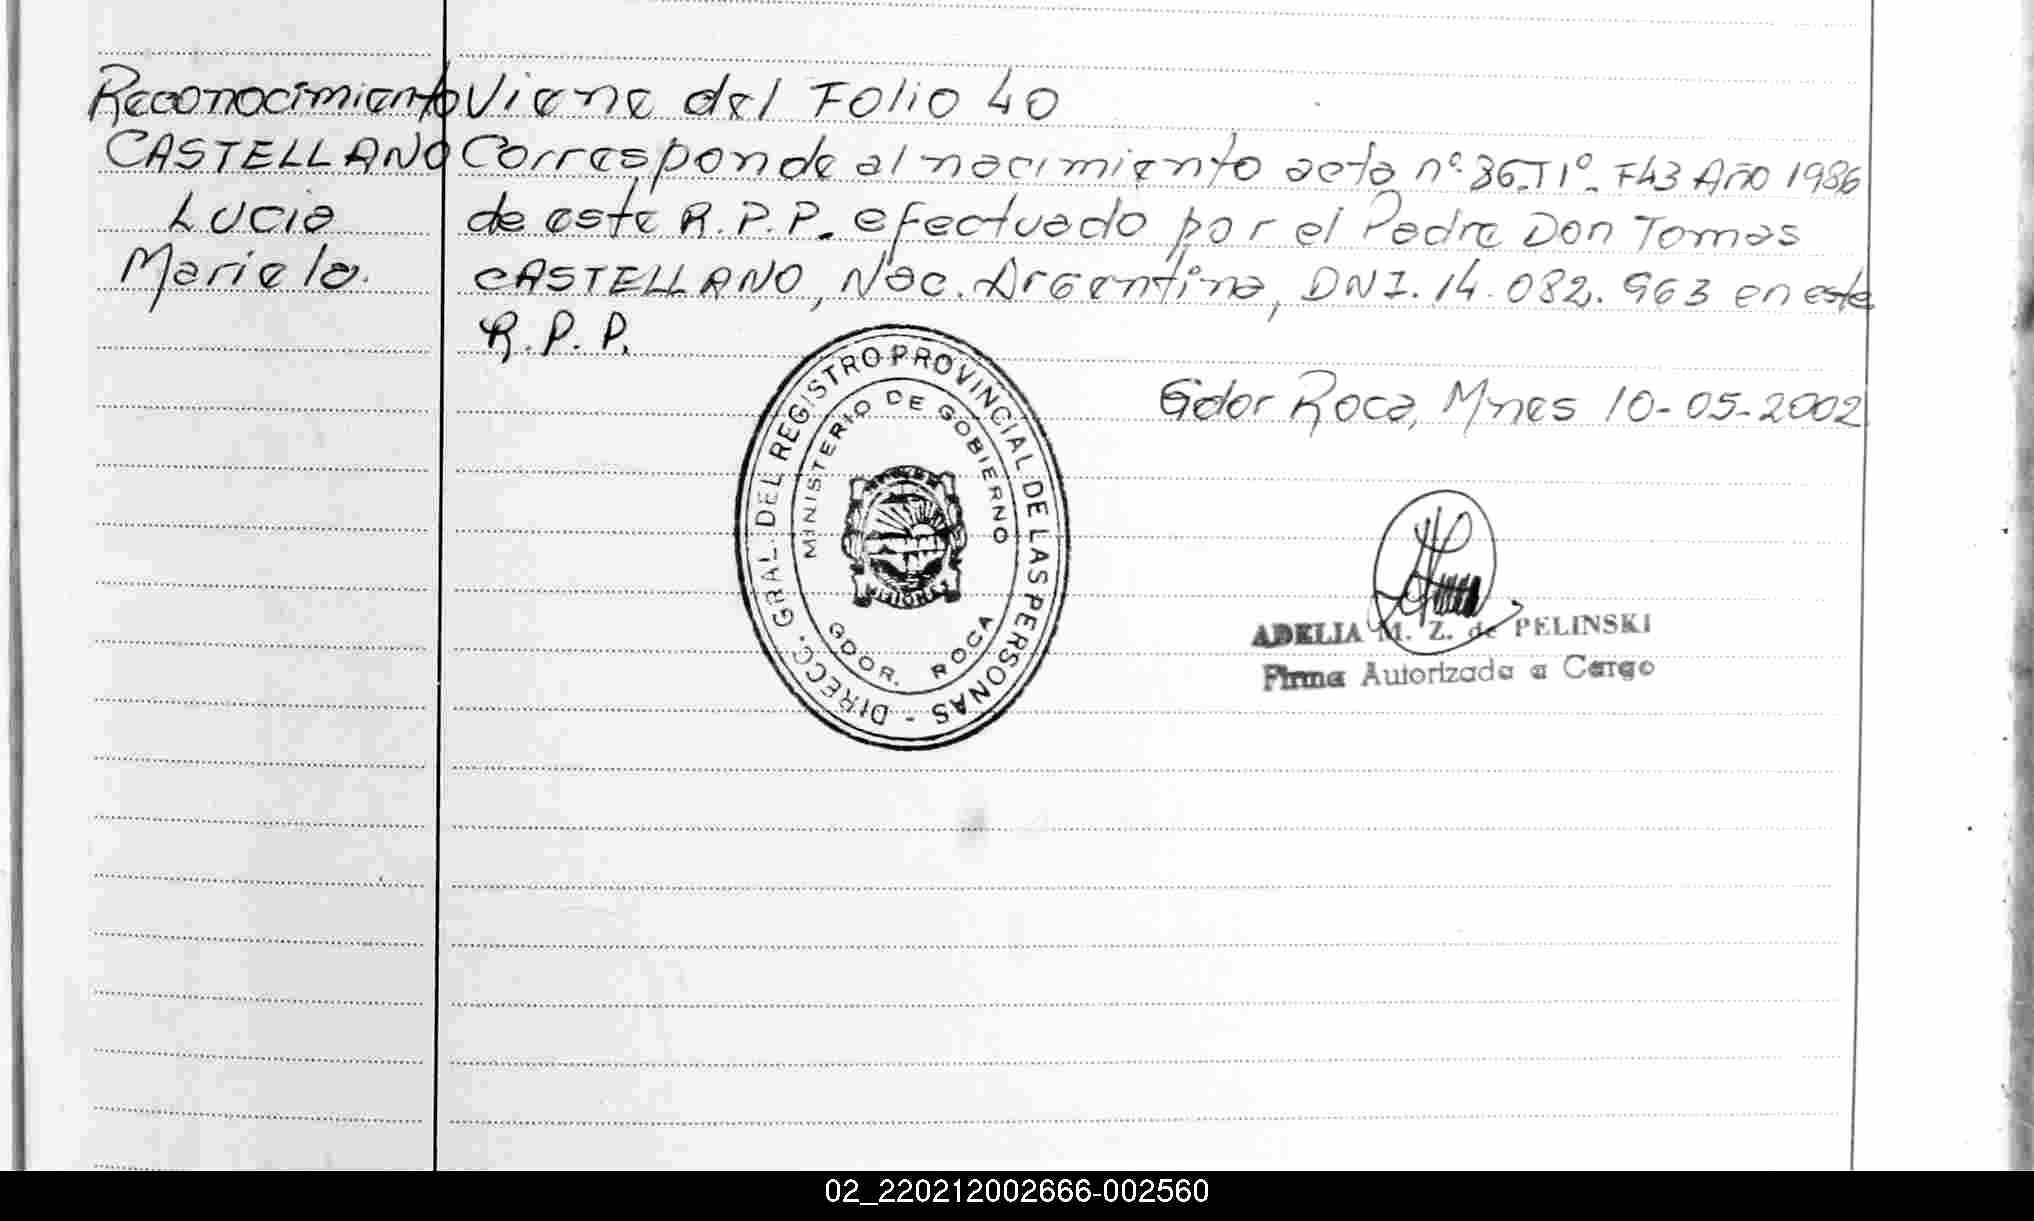 Reconocimiento
CASTELLANO
Lucia
Mariela.
Viene del Folio 40
Corresponde al nacimiento acta nº.36.T1º. F43 Año 1986
de este R.P.P. efectuado por el Padre Don Tomas
CASTELLANO, Nac. Argentina, DNI. 14.082.963 en este
R.P.P.
Gdor Roca, Mnes 10-05-2002
DIRECC. GRAL. DEL REGISTRO PROVINCIAL DE LAS PERSONAS -
MINISTERIO DE GOBIERNO
MISIONES
GDOR. ROCA
ADELIA M. Z. de PELINSKI
Firma Autorizada a Cargo
02_220212002666-002560